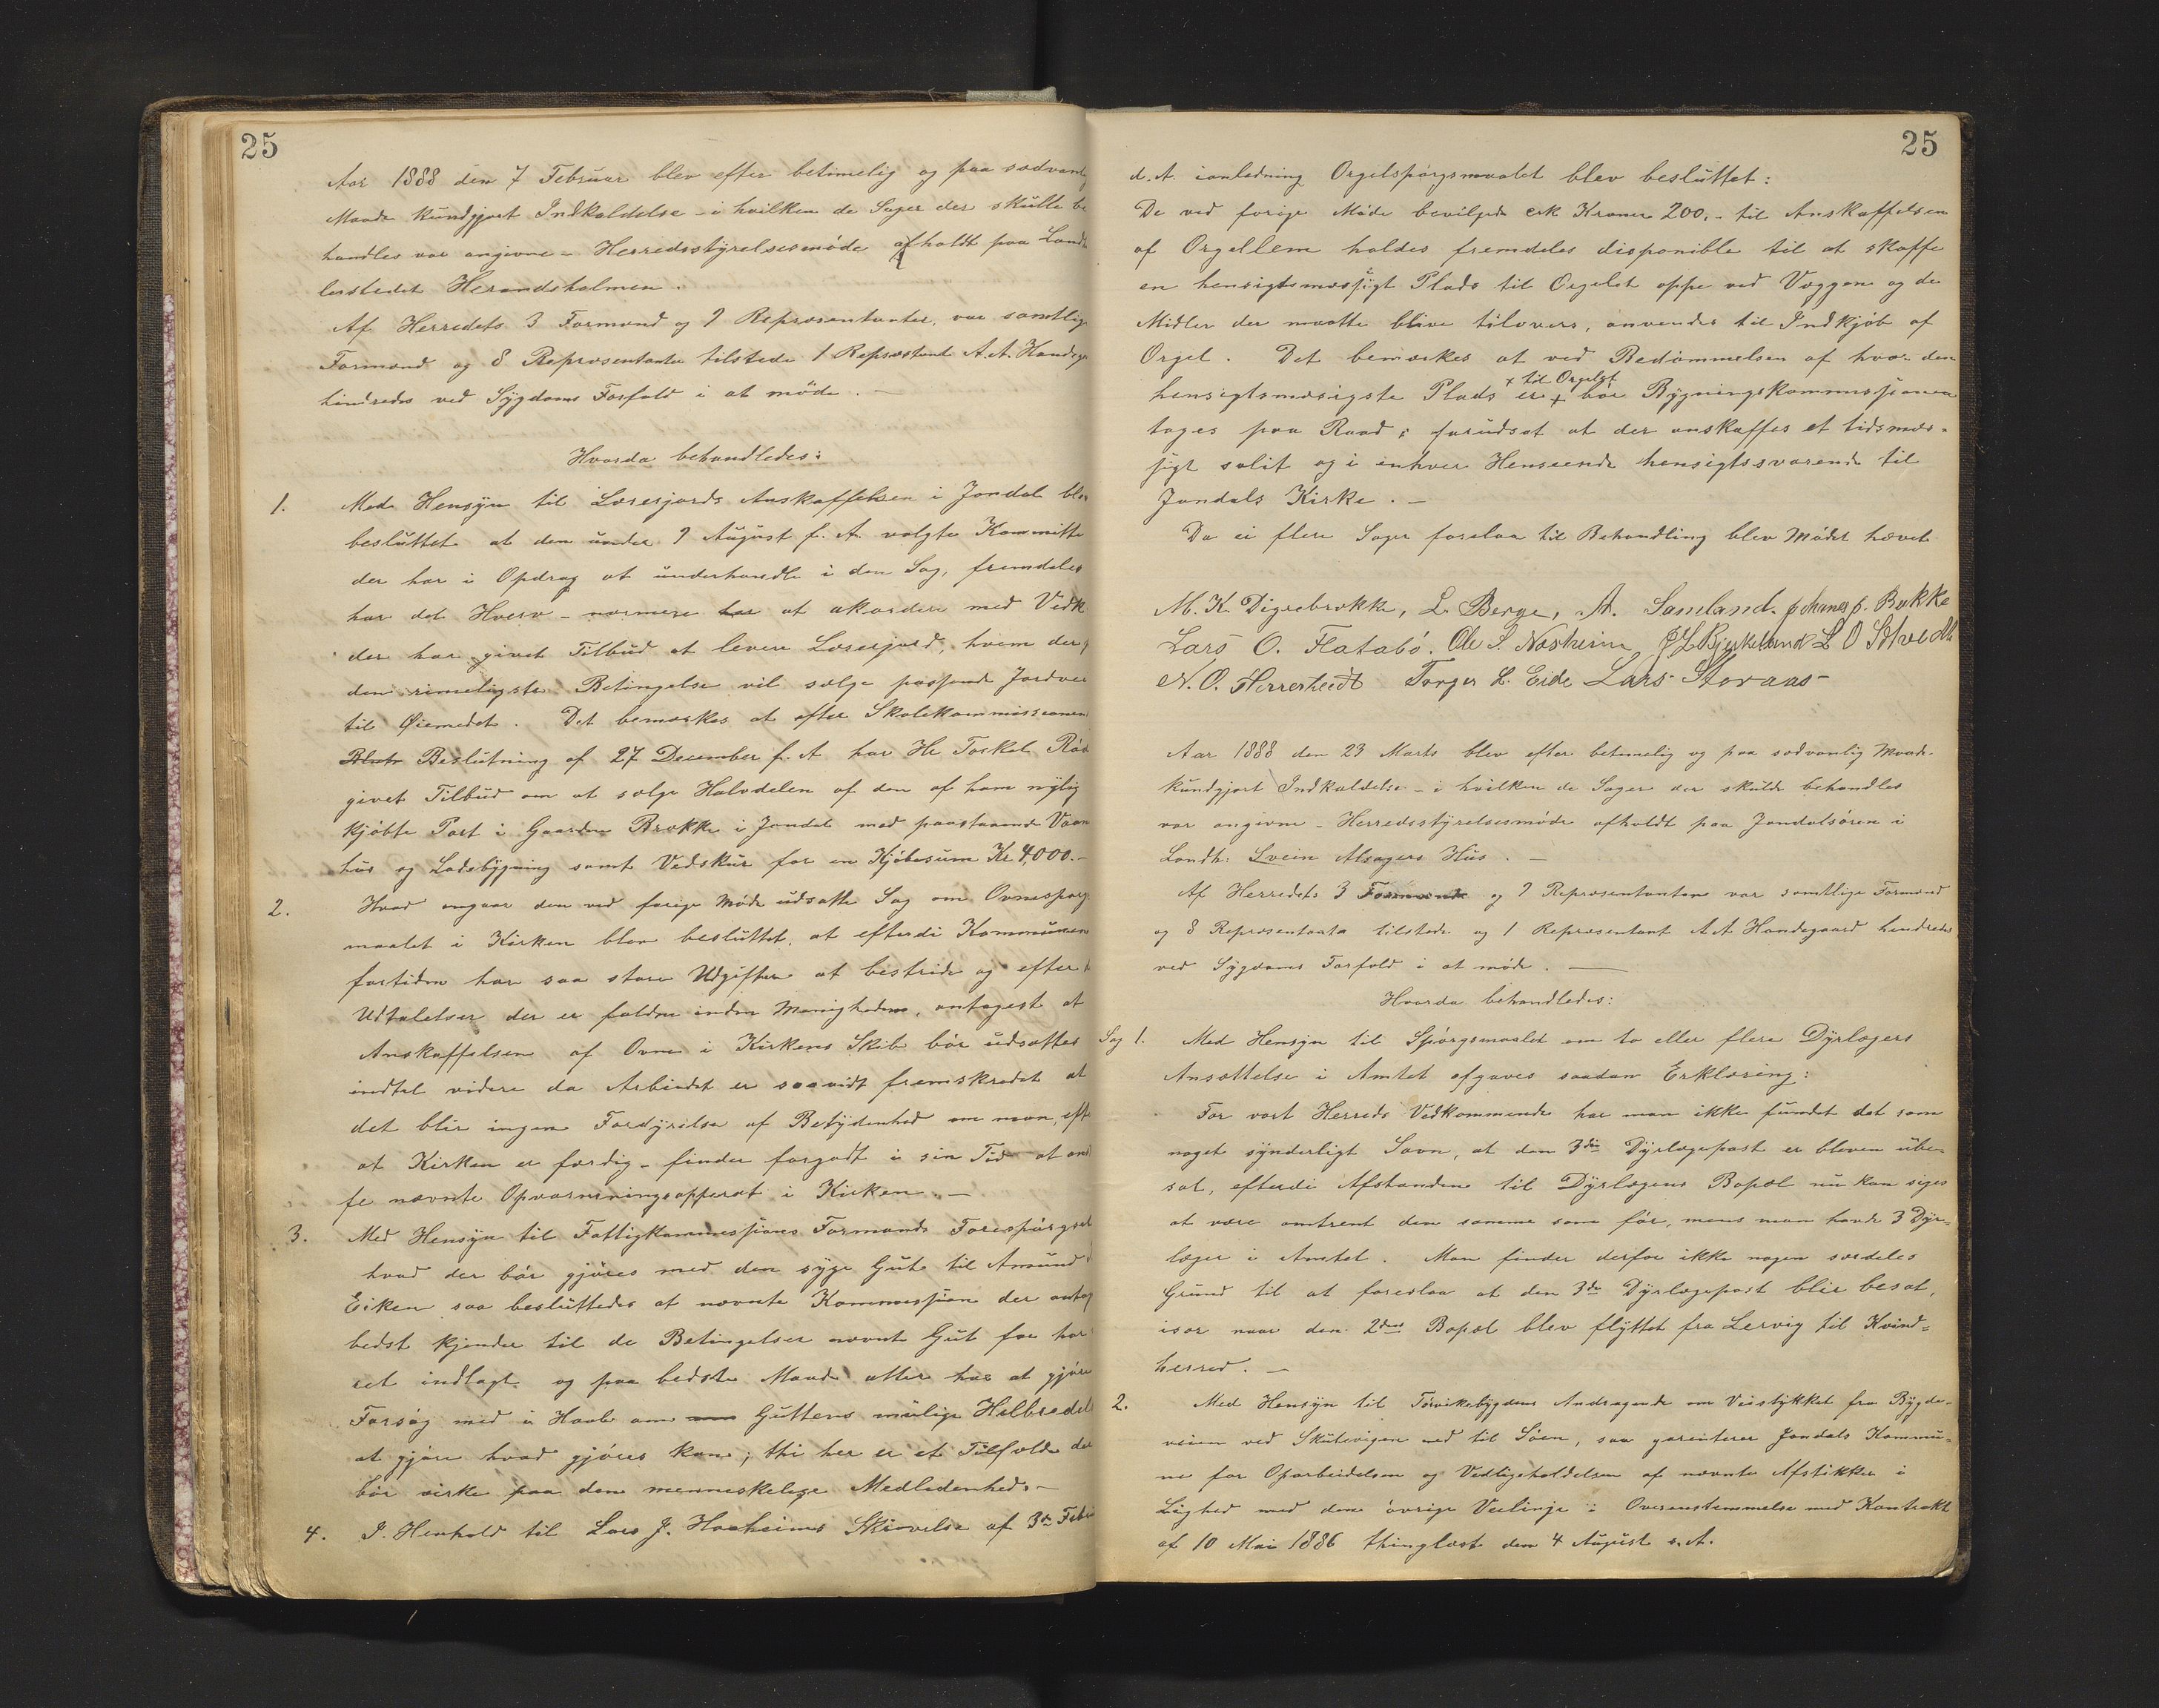 25
Aar 1888 den 7 Februar blev efter betimelig og paa sædvanlig
Maade kundgjort Indkaldelse - i hvilken de Sager der skulle be
handles var angivne - Herredsstyrelsesmöde afholdt paa Land
lerstedet Herandsholmen.
Af Herredets 3 Formænd og 9 Repræsentanter, var samtlige
Formænd og 8 Repræsentanter tilstede 1 Repræstant A. A. Handeg
hindredes ved Sygdoms Forfald i at möde. -
Hvorda behandledes:
1. Med Hensyn til Lærerjords Anskaffelsen i Jondal blev
besluttet at den under 9 August f. A. valgte Kommitte
der har i Opdrag at underhandle i den Sag, fremdeles
har det Hverv - nærmere at akordere med Vedk
der har givet Tilbud at levere Lærerjord, hvem der
den rimeligste Betingelse vil sælge passende Jordvei
til Øiemedet. Det bemærkes at efter Skolekommissionens
Beslutning af 27 December f. A. har Hr Torkel Röd
givet Tilbud om at sælge Halvdelen af den af ham nylig
kjöbte Part i Gaarden Brække i Jondal med paastaaende Vaan
hus og Ladebygning samt Vedskur for en Kjöbesum Kr 4,000.-
2. Hvad angaar den ved forige Möde udsatte Sag om Ovnespörg
maalet i Kirken blev besluttet, at efterdi Kommunen
fortiden har saa store Udgifter at bestride og efter
Udtalelser der er falden inden Menigheden, antagest at
Anskaffelsen af Ovne i Kirkens Skib bör udsættes
indtil videre da Arbeidet er saavidt fremskredet at
det blir ingen Fordyrelse af Betydenhed om man, eft
at Kirken er færdig - finder forgodt i sin Tid at ans
fe nævnte Opvarmningsapperat i Kirken. -
3. Med Hensyn til Fattigkommissjones Formands Forespörgsel
hvad der bör gjöres med den syge Gut til Amund
Eiken saa besluttedes at nævnte Kommissjon der antag
bedst kjender til de Betingelser nævnt Gut for har
et indlagt og paa bedste Maade atter har at gjöre
Forsög med i Haab om Guttens mulige Helbredel
at gjöre hvad gjöres kan; thi her er et Tilfælde der
bör virke paa den menneskelige Medlidenhed. -
4. I Henhold til Lars J. Haaheims Skrivelse af 3de Febr
25
d. A. ianledning Orgelspörgsmaalet blev besluttet:
De ved forige Möde bevilgede Kroner 200,- til Anskaffelsen
af Orgellem holdes fremdeles disponible til at skaffe
en hensigtsmæssigt Plads til Orgelet oppe ved Væggen og de
Midler der maatte blive tilovers, anvendes til Indkjöb af
Orgel. Det bemærkes at ved Bedömmelsen af hvor den
+ til Orgelet
hensigtsmæsigste Plads er + bör Bygningskommissjonen
tages paa Raad; forudsat at der anskaffes et tidsmæs-
sigt solit og i enhver Henseende hensigtssvarende til
Jondals Kirke. -
Da ei flere Sager forelaa til Behandling blev Mödet hævet
M. K. Digrebrække, L. Berge, A. Samland. Johannes J. Bakke
Lars O. Flatabö. Ole S. Næsheim J L Bjerkeland L O Selvedt
N. O. Herresteedt Torger L. Eide Lars Storaas-
Aar 1888 den 23 Marts blev efter betimelig og paa sædvanlig Maade
kundgjort Indkaldelse - i hvilken de Sager der skulde behandles
var angivne - Herredsstyrelsesmöde afholdt paa Jondalsören i
Landh: Svein Alsagers Hus. -
Af Herredets 3 Formænde og 9 Repræsentanten var samtlige Formænd
og 8 Repræsentanter tilstede og 1 Repræsentant A A Handegaard hindredes
ved Sygdoms Forfald i at möde. -
Hvorda behandledes:
Sag 1. Med Hensyn til Spörgsmaalet om to eller flere Dyrlægers
Ansættelse i Amtet afgaves saadan Erklæring:
For vort Herreds Vedkommende har man ikke fundet det som
noget synderligt Savn, at den 3die Dyrlægepost er bleven ube-
sat, efterdi Afstanden til Dyrlægens Bopæl nu kan siges
at være omtrent den samme som för, mens man havde 3 Dyr-
læger i Amtet. Man finder derfor ikke nogen særdeles
Grund til at foreslaa at den 3die Dyrlægepost blir besat,
især naar den 2dens Bopæl blev flyttet fra Lervig til Kvind-
herred. -
2. Med Hensyn til Törvikebygdens Andragende om Veistykket fra Bygde-
veien ved Skutevigen ned til Söen, saa garenterer Jondals Kommu-
ne for Oparbeidelsen og Vedligeholdelsen af nævnte Afstikker i
Lighed med den övrige Veilinje i Overenstemmelse med Kontrakt
af 10 Mai 1886 thinglæst den 4 August s. A.